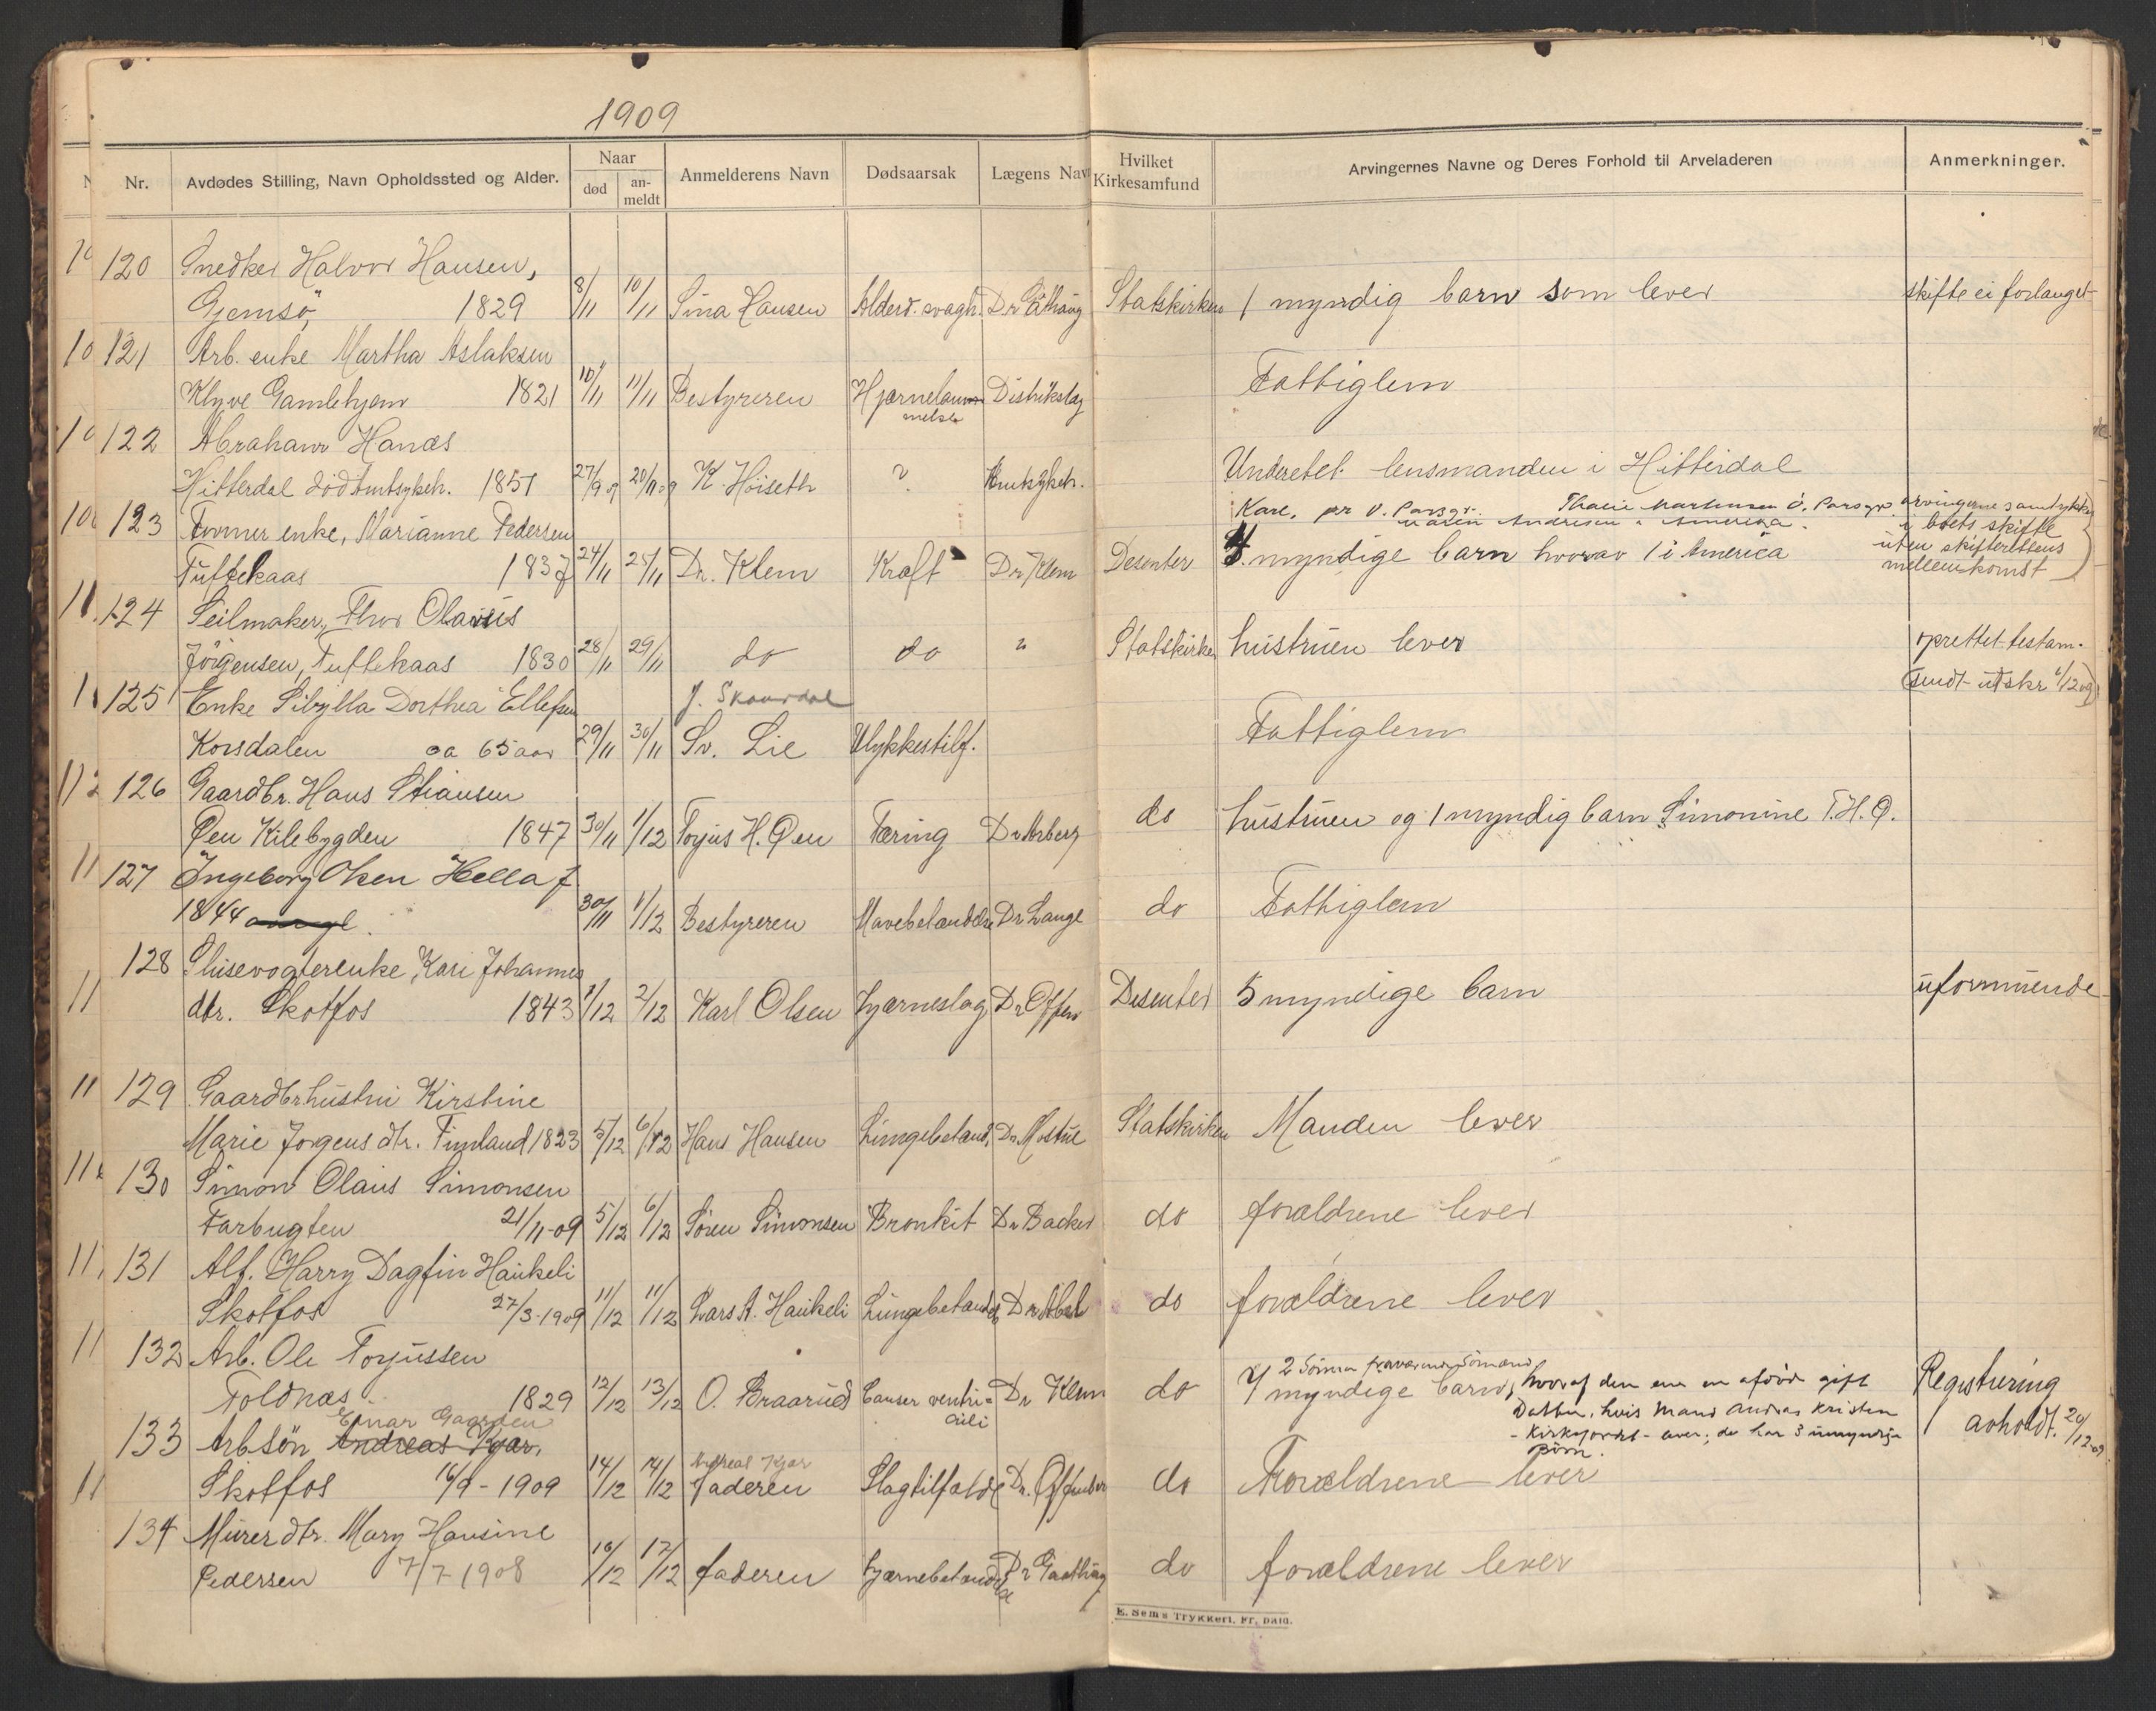 1909
Nr. Avdødes Stilling, Navn Opholdssted og Alder. Naar død an-meldt Anmelderens Navn Dødsaarsak Lægens Navn Hvilket Kirkesamfund Arvingernes Navne og Deres Forhold til Arveladeren Anmerkninger.
120 Snedker Halvor Hansen,
Gjemsö, 1829 8/11 10/11 Sina Hansen Alderd. svagh. Dr Gåthaug Statskirken 1 myndig barn som lever skifte ei forlanget
121 Arb. enke Martha Aslaksen
Klyve Gamlehjem 1821 10/11 11/11 Bestyreren Hjernelammelse Distrikslæg Fattiglem
122 Abraham Hanas
Hitterdal död Amtsykeh. 1851 27/9 09 20/11 09 K. Höiseth ? Amtsykeh. Underet. lensmanden i Hitterdal
123 Formerenke, Marianne Pedersen
Karl, pr V. Porsgr. Thalie Martinsen V. Porsgr.
Maren Andresen i Amerika.
Tuftekaas 1837 24/11 25/11 Dr. Klem Kræft Dr Klem Desenter 4 myndige barn hvorav 1 i America
arvingerne samtykker
i boets skifte
uten skifterettens
mellemkomst
124 Seilmaker, Thor Olavius
Jörgensen, Tuftekaas 1830 28/11 29/11 do do " Statskirken hustruen lever oprettet testam.
(sendt utskr 6/12 09)
125 Enke Sibylla Dorthea Ellefsen J. Skaardal
Korsdalen ca 65 aar 29/11 30/11 Sv. Lie Ulykkestilf. Fattiglem
126 Gaardbr. Hans Stiansen
Øen Kilebygden 1847 30/11 1/12 Torjus H. Øen Tæring Dr Arberg do hustruen og 1 myndig barn Simonine T.H.Ø.
127 Ingeborg Olsen Hella f
1844 30/11 1/12 Bestyreren Mavebetændelse Dr Lange do Fattiglem
128 Slusevogterenke, Kari Johannes
dtr. Skotfos 1843 1/12 2/12 Karl Olsen hjerneslag Dr Offen Desenter 5 myndige barn uformuende
129 Gaardbrhustru Kirstine
Marie Jorgens dtr. Fimland 1823 5/12 6/12 Hans Hansen Lungebetænd. Dr. Mostue Statskirken Manden lever
130 Simon Olaus Simonsen
Farbugten 21/11-09 5/12 6/12 Sören Simonsen Bronkit Dr Backer do forældrene lever
131 Alf. Harry Dagfin Haukeli
Skotfos 27/3-1909 11/12 11/12 Lars A. Haukeli Lungebetænd. Dr Abel do forældrene lever
132 Arb. Ole Torjussen
2 Sönner fraværende Sömænd
Foldnæs 1829 12/12 13/12 O. Braarud Canser ventriculi Dr Klem do 4 myndige barn, hvoraf den ene en afdöd gift
Datter, hvis Mand Andreas Kristen
-Kirkefjordet- lever; de har 3 umyndige
Börn.
Registrering
avholdt. 20/12 09
133 Arb.sön Andreas Kjær, Einar Gaarden
Andreas Kjær
Skotfos 16/9-1909 14/12 14/12 Faderen Slagtilfælde Dr. Offenber do Forældrene lever
134 Murer dtr. Mary Hansine
Pedersen 7/7 1908 16/12 17/12 faderen hjernebetændelse Dr Gaathaug do forældrene lever
E. Sem's Trykkeri, Fr.hald.